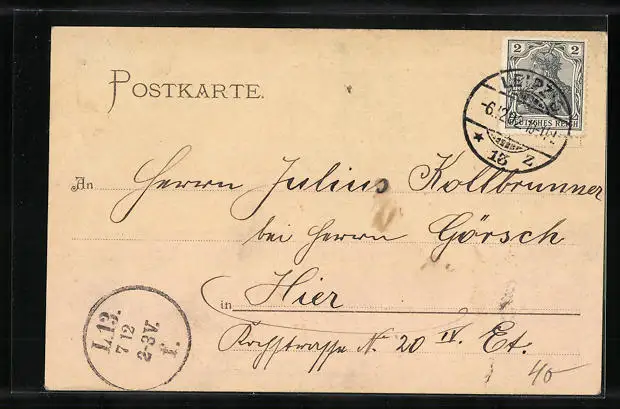 POSTKARTE.
2 2
DEUTSCHES REICH
LEIPZIG
-6.12.
* 13 z
An Herrn Julius Kollbrunner
bei Herrn Görsch
in Hier
Kochstrasse No. 20 IV. Et.
L.13.
7 12
2-3V.
F.
40